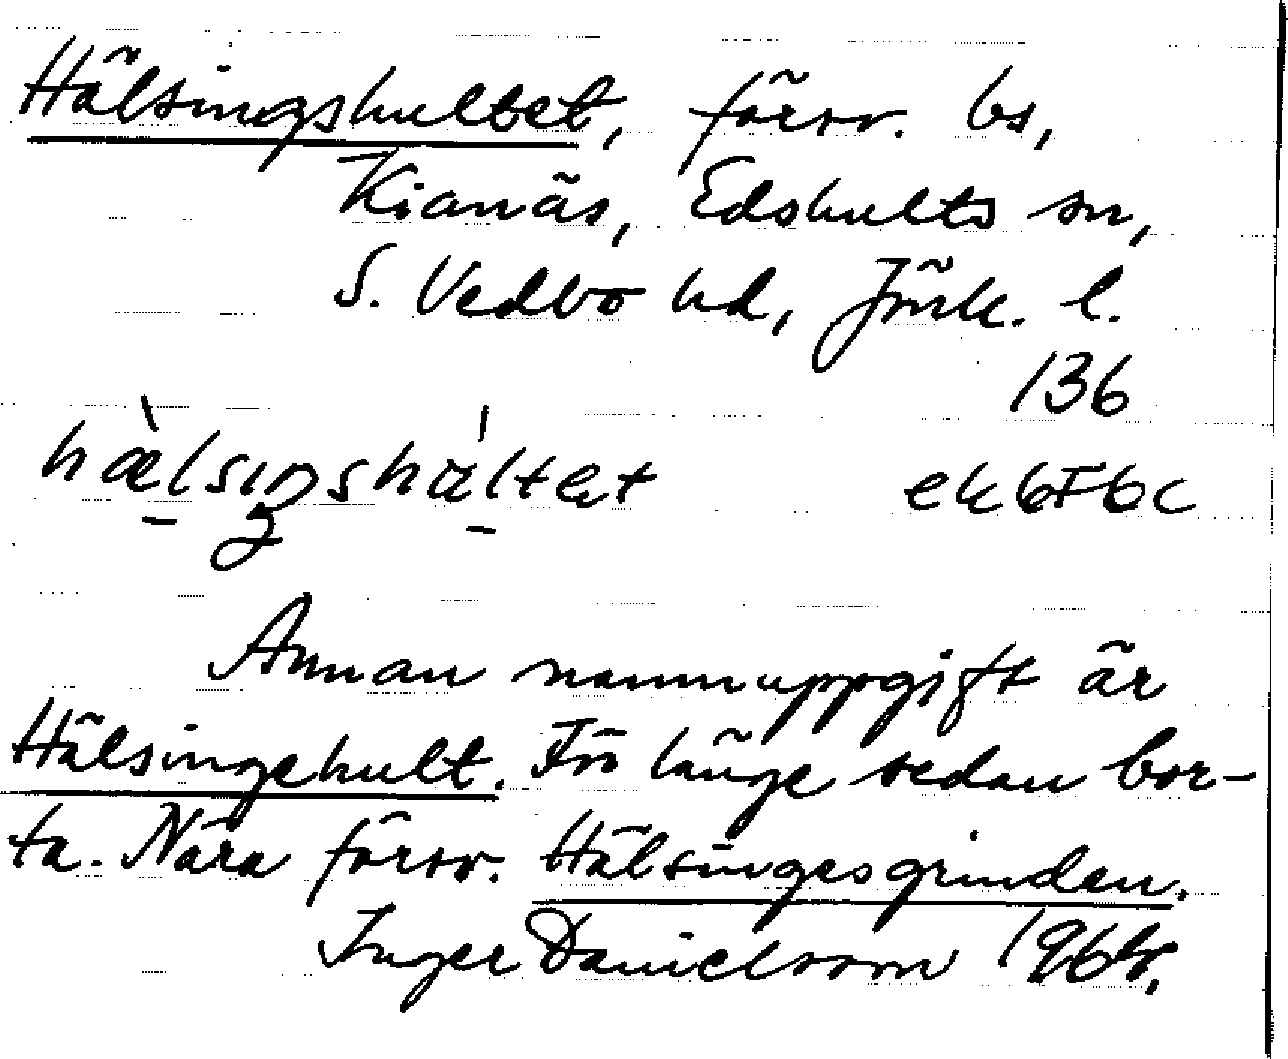 Hälsingshultet, försv. bs,
Kianäs, Edshults sn,
S. Vedbo hd, Jönk. l.
136
hæ̀lsıŋshúltət ek6F6c
Annan namnuppgift är
Hälsingehult. För länge sedan bor-
ta. Nära försv. Hälsingesgrinden.
Inger Danielsson 1964.